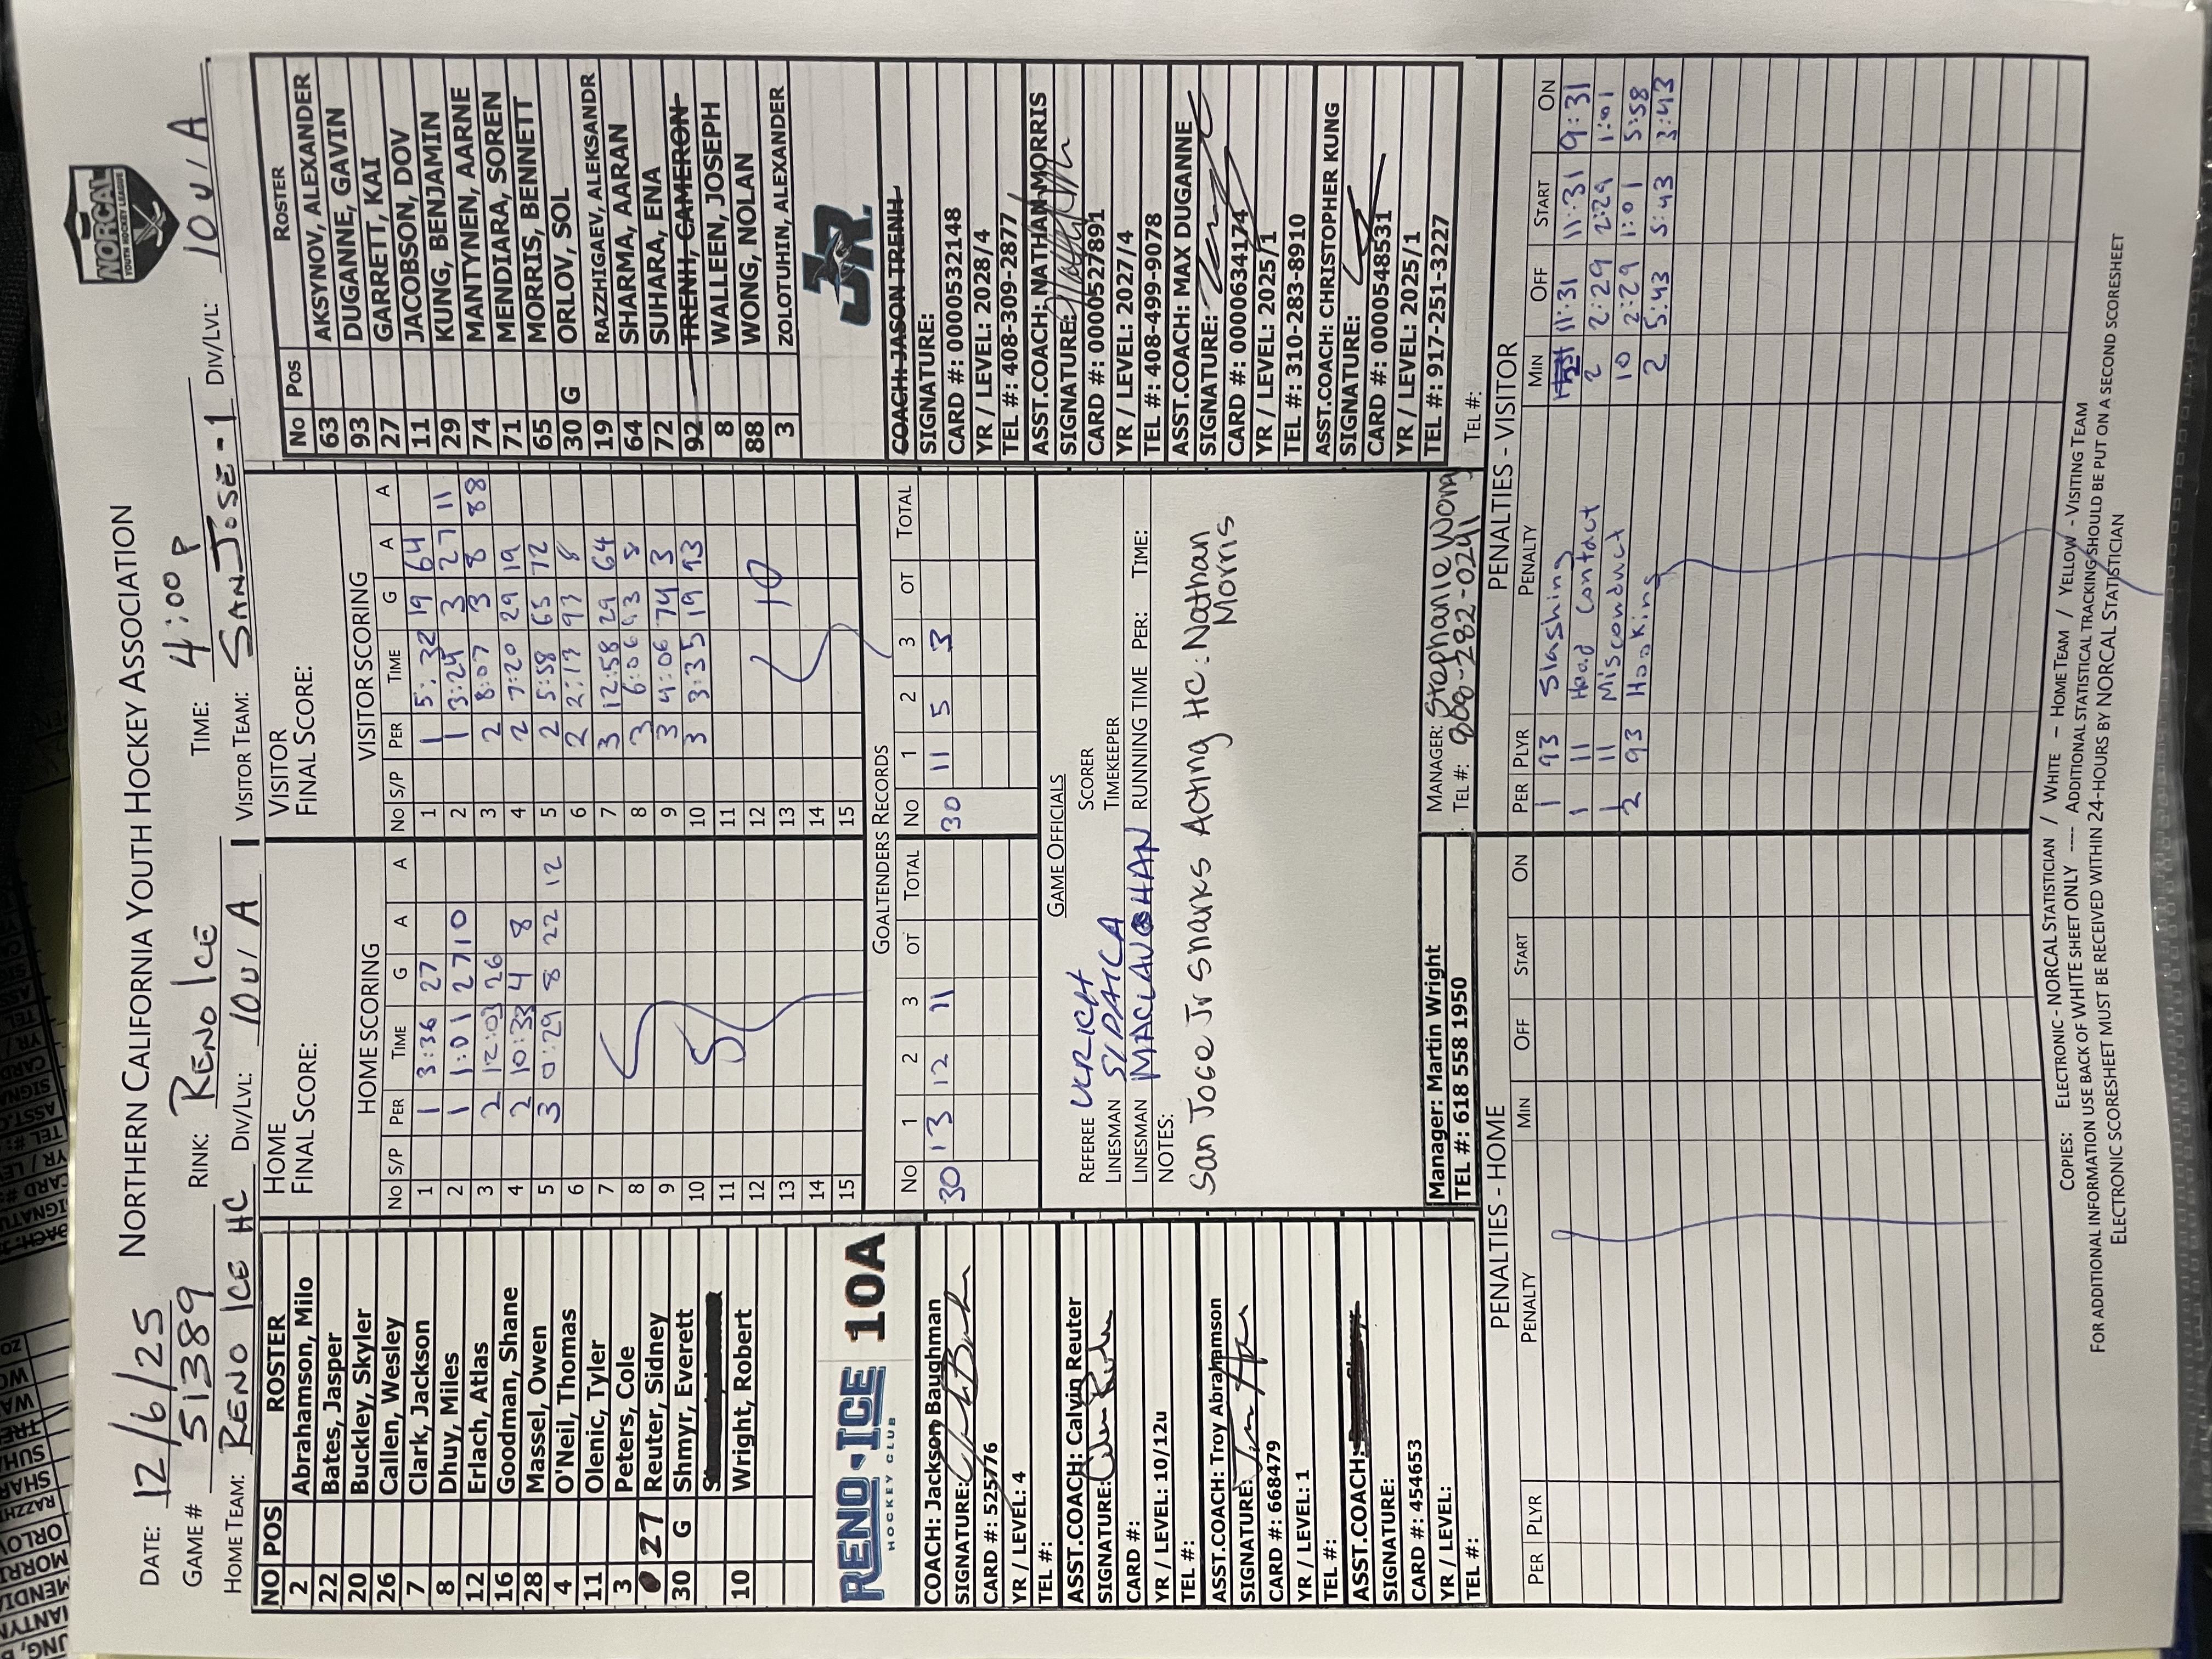 DATE: 12/6/25 NORTHERN CALIFORNIA YOUTH HOCKEY ASSOCIATION
NORCAL
YOUTH HOCKEY LEAGUE
GAME # 51389 RINK: RENO ICE TIME: 4:00 P
HOME TEAM: RENO ICE HC DIV/LVL: 10U A VISITOR TEAM: SAN JOSE-1 DIV/LVL: 10U A
NO POS ROSTER
2 Abrahamson, Milo
22 Bates, Jasper
20 Buckley, Skyler
26 Callen, Wesley
7 Clark, Jackson
8 Dhuy, Miles
12 Erlach, Atlas
16 Goodman, Shane
28 Massel, Owen
4 O'Neil, Thomas
11 Olenic, Tyler
3 Peters, Cole
27 Reuter, Sidney
30 G Shmyr, Everett
10 Wright, Robert
RENO ICE 10A
HOCKEY CLUB
COACH: Jackson Baughman
SIGNATURE:
CARD #: 525776
YR / LEVEL: 4
TEL #:
ASST.COACH: Calvin Reuter
SIGNATURE:
CARD #:
YR / LEVEL: 10/12u
TEL #:
ASST.COACH: Troy Abrahamson
SIGNATURE:
CARD #: 668479
YR / LEVEL: 1
TEL #:
ASST.COACH:
SIGNATURE:
CARD #: 454653
YR / LEVEL:
TEL #:
HOME
FINAL SCORE:
HOME SCORING
No S/P PER TIME G A A
1 1 3:36 27
2 1 1:01 27 10
3 2 12:03 26
4 2 10:33 4 8
5 3 0:29 8 22 12
6
7
8
9
10
11
12
13
14
15
5
VISITOR
FINAL SCORE:
VISITOR SCORING
No S/P PER TIME G A A
1 1 5:32 19 64
2 1 3:24 3 27 11
3 2 8:07 3 8 88
4 2 7:20 29 19
5 2 5:58 65 72
6 2 2:17 93 8
7 3 12:58 29 64
8 3 6:06 93 8
9 3 4:06 74 3
10 3 3:35 19 93
11
12
13
14
15
10
GOALTENDERS RECORDS
No 1 2 3 OT TOTAL No 1 2 3 OT TOTAL
30 13 12 11 30 11 5 3
GAME OFFICIALS
REFEREE SCORER
LINESMAN TIMEKEEPER
LINESMAN RUNNING TIME PER: TIME:
NOTES:
San Jose Jr Sharks Acting HC: Nathan
Morris
Manager: Martin Wright
TEL #: 618 558 1950
MANAGER: Stephanie Wong
TEL #: 808-282-0241
No Pos ROSTER
63 AKSYNOV, ALEXANDER
93 DUGANNE, GAVIN
27 GARRETT, KAI
11 JACOBSON, DOV
29 KUNG, BENJAMIN
74 MANTYNEN, AARNE
71 MENDIARA, SOREN
65 MORRIS, BENNETT
30 G ORLOV, SOL
19 RAZZHIGAEV, ALEKSANDR
64 SHARMA, AARAN
72 SUHARA, ENA
92 TRENH, CAMERON
8 WALLEEN, JOSEPH
88 WONG, NOLAN
3 ZOLOTUHIN, ALEXANDER
JR.
COACH: JASON TRENH
SIGNATURE:
CARD #: 0000532148
YR / LEVEL: 2028/4
TEL #: 408-309-2877
ASST.COACH: NATHAN MORRIS
SIGNATURE:
CARD #: 0000527891
YR / LEVEL: 2027/4
TEL #: 408-499-9078
ASST.COACH: MAX DUGANNE
SIGNATURE:
CARD #: 0000634174
YR / LEVEL: 2025/1
TEL #: 310-283-8910
ASST.COACH: CHRISTOPHER KUNG
SIGNATURE:
CARD #: 0000548531
YR / LEVEL: 2025/1
TEL #: 917-251-3227
TEL #:
PENALTIES - HOME
PER PLYR PENALTY MIN OFF START ON
PENALTIES - VISITOR
PER PLYR PENALTY MIN OFF START ON
1 93 Slashing 11:31 11:31 9:31
1 11 Head Contact 2 2:29 2:29 1:01
1 11 Misconduct 10 2:29 1:01 5:58
2 93 Hooking 2 5:43 5:43 3:43
COPIES: ELECTRONIC - NORCAL STATISTICIAN / WHITE - HOME TEAM / YELLOW - VISITING TEAM
FOR ADDITIONAL INFORMATION USE BACK OF WHITE SHEET ONLY ---- ADDITIONAL STATISTICAL TRACKING SHOULD BE PUT ON A SECOND SCORESHEET
ELECTRONIC SCORESHEET MUST BE RECEIVED WITHIN 24-HOURS BY NORCAL STATISTICIAN